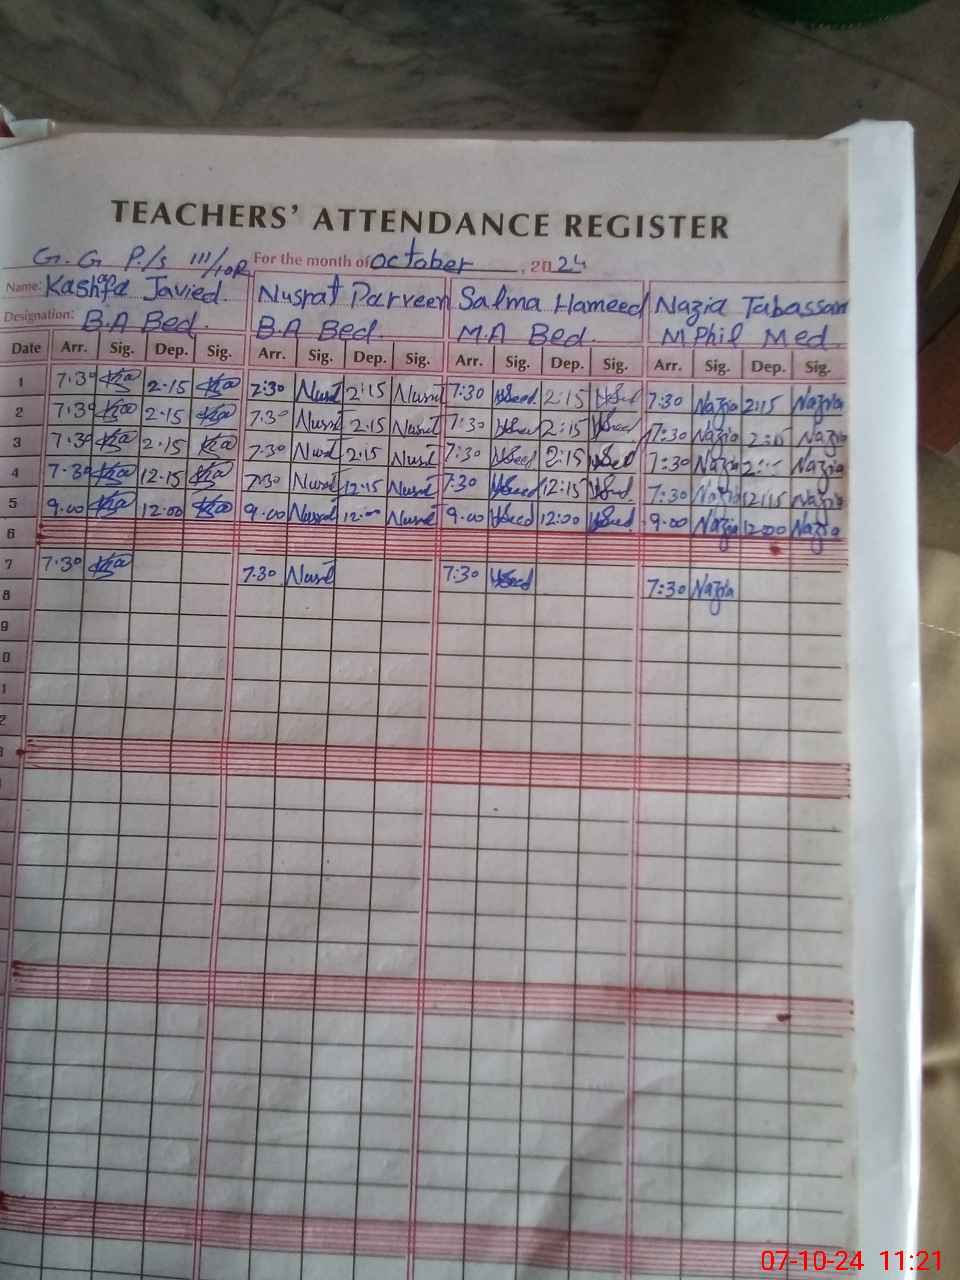 TEACHERS' ATTENDANCE REGISTER
G.G P/s 111/10R For the month of October, 2024
Name: Kashfa Javied Nusrat Parveen Salma Hameed Nazia Tabassam
Designation: B.A Bed. B.A Bed. M.A Bed. M Phil Med.
Date Arr. Sig. Dep. Sig. Arr. Sig. Dep. Sig. Arr. Sig. Dep. Sig. Arr. Sig. Dep. Sig.
1 7.30 2.15 7:30 Nusrat 2:15 Nusrat 7:30 2:15 7:30 Nazia 2:15 Nazia
2 7.30 2.15 7.30 Nusrat 2.15 Nusrat 7:30 2:15 7:30 Nazia 2:15 Nazia
3 7.30 2.15 7.30 Nusrat 2.15 Nusrat 7:30 2:15 7:30 Nazia Nazia
4 7.30 12.15 7.30 Nusrat 12.15 Nusrat 7:30 12:15 7:30 Nazia 12:15 Nazia
5 9.00 12.00 9.00 Nusrat 12.00 Nusrat 9.00 12:00 9.00 Nazia 12:00 Nazia
6
7 7.30 7.30 Nusrat 7:30 7:30 Nazia
8
9
0
1
2
07-10-24 11:21